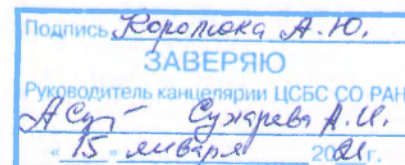 Подпись Королюка А.Ю.
ЗАВЕРЯЮ
Руководитель канцелярии ЦСБС СО РАН
Сухарева А.И.
«15» января 2021г.